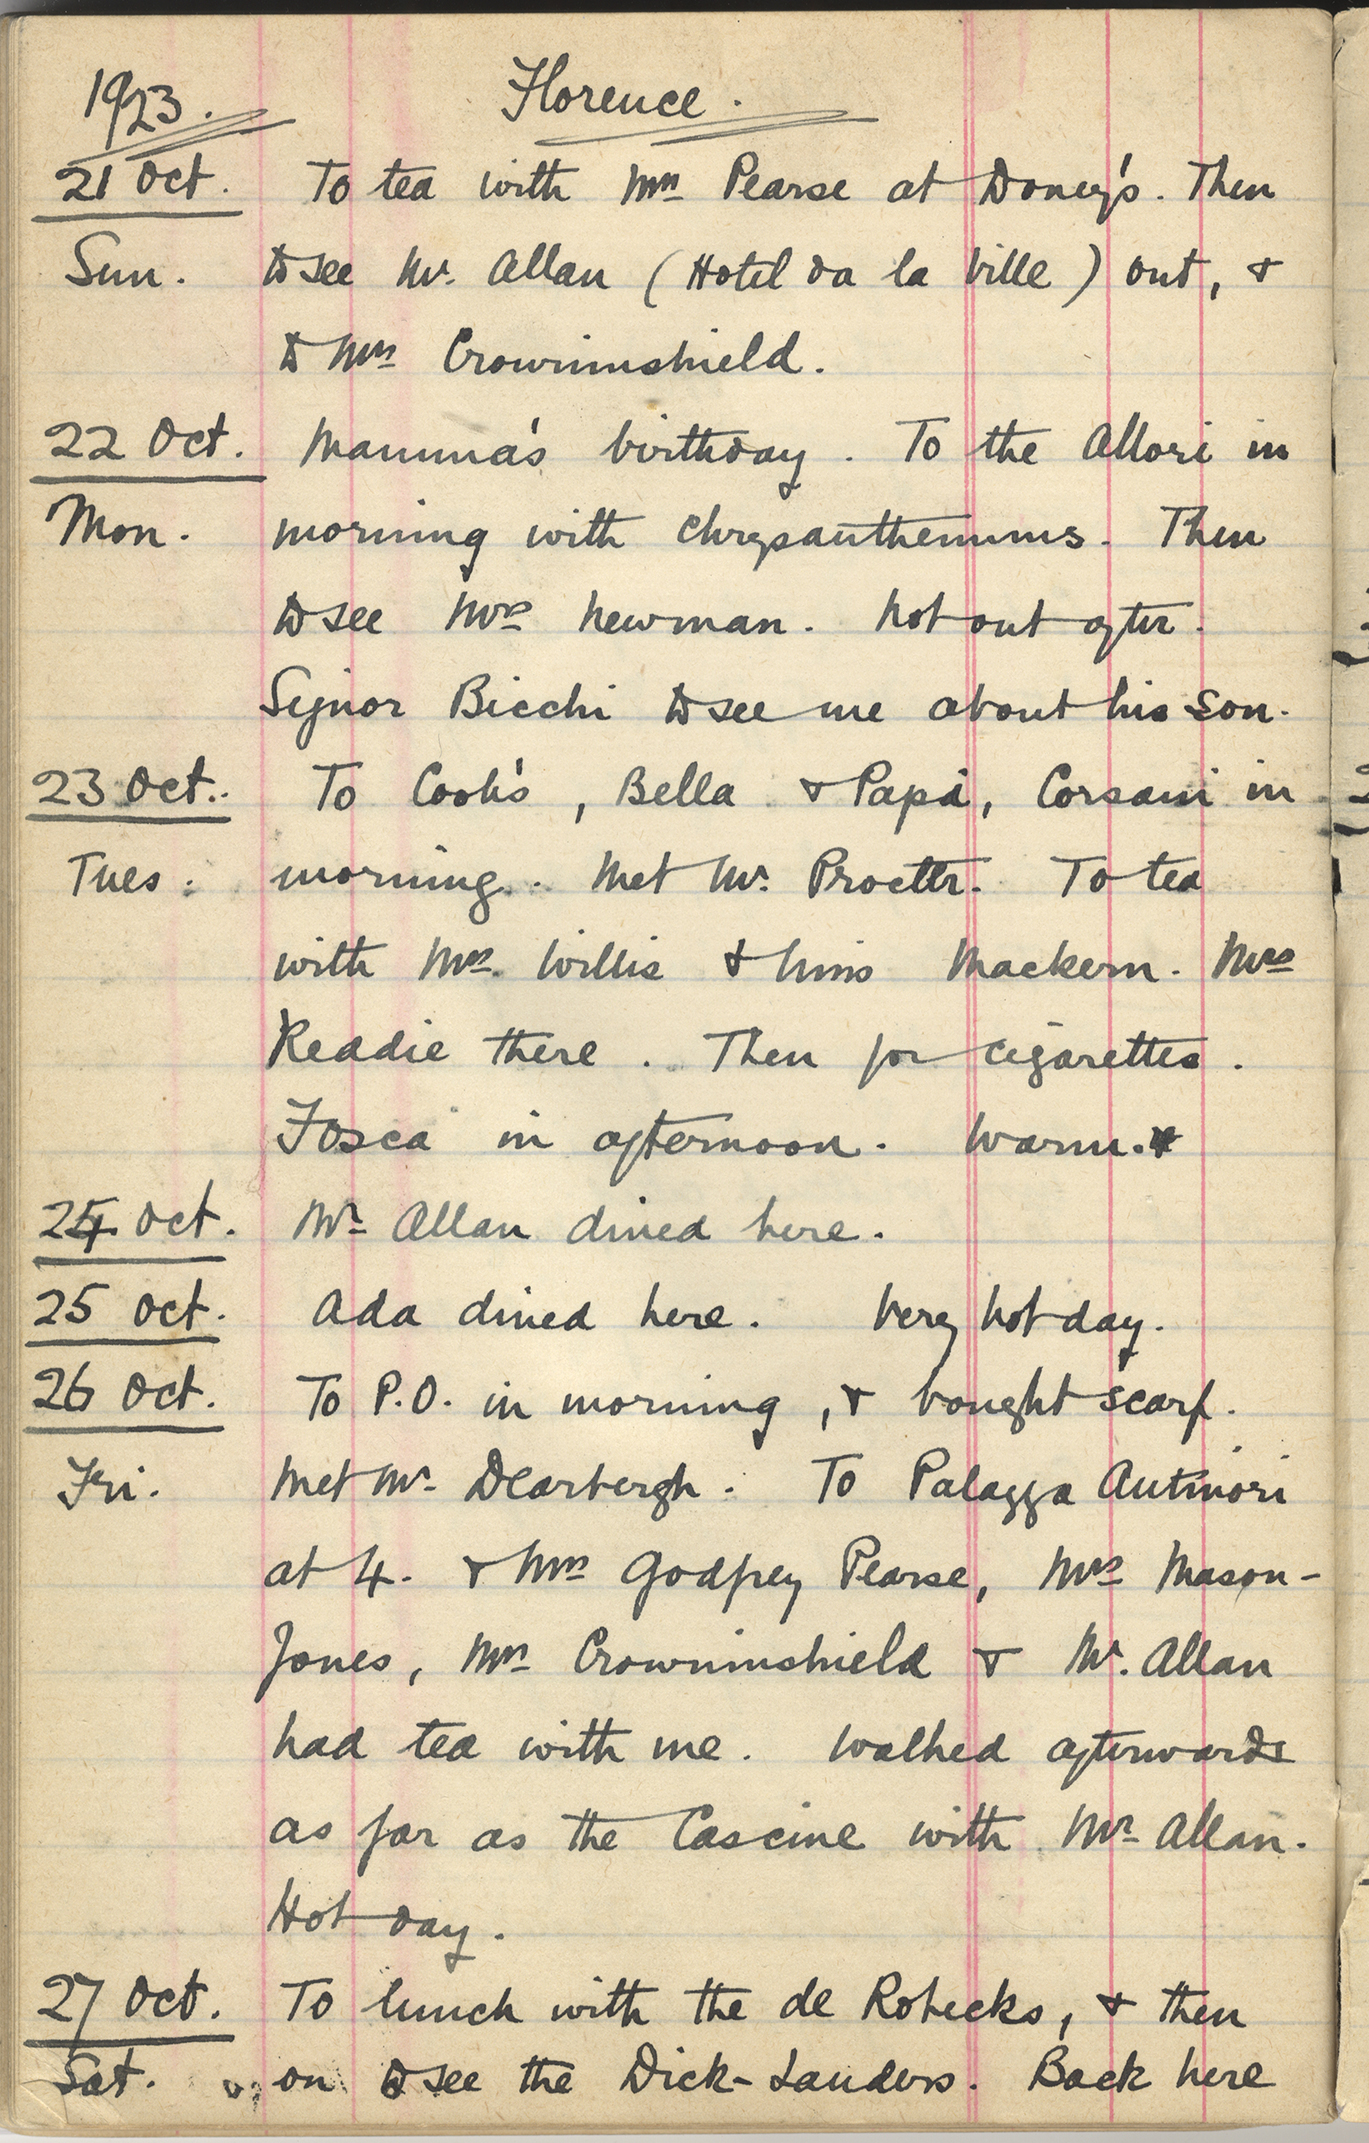 1923. Florence.
21 Oct. To tea with Mrs Pearse at Doney's. Then
Sun. to see Mr. Allan (Hotel da la Ville) out, &
to Mrs Crowninshield.
22 Oct. Mamma's birthday. To the Allori in
Mon. morning with chrysanthemums. Then
to see Mrs Newman. Not out after.
Signor Bicchi to see me about his son.
23 Oct. To Cook's, Bella & Papà, Corsani in
Tues. morning. Met Mr. Procter. To tea
with Mrs. Willis & Miss Mackern. Mrs
Reddie there. Then for cigarettes.
Fosca in afternoon. Warm.
24 Oct. Mr Allan dined here.
25 Oct. Ada dined here. Very hot day.
26 Oct. To P.O. in morning, & bought scarf.
Fri. Met Mr Dearbergh. To Palazzo Antinori
at 4. & Mrs Godfrey Pearse, Mrs Mason-
Jones, Mrs Crowninshield & Mr. Allan
had tea with me. Walked afterwards
as far as the Cascine with Mr Allan.
Hot day.
27 Oct. To lunch with the de Robecks, & then
Sat. on to see the Dick-Lauders. Back here